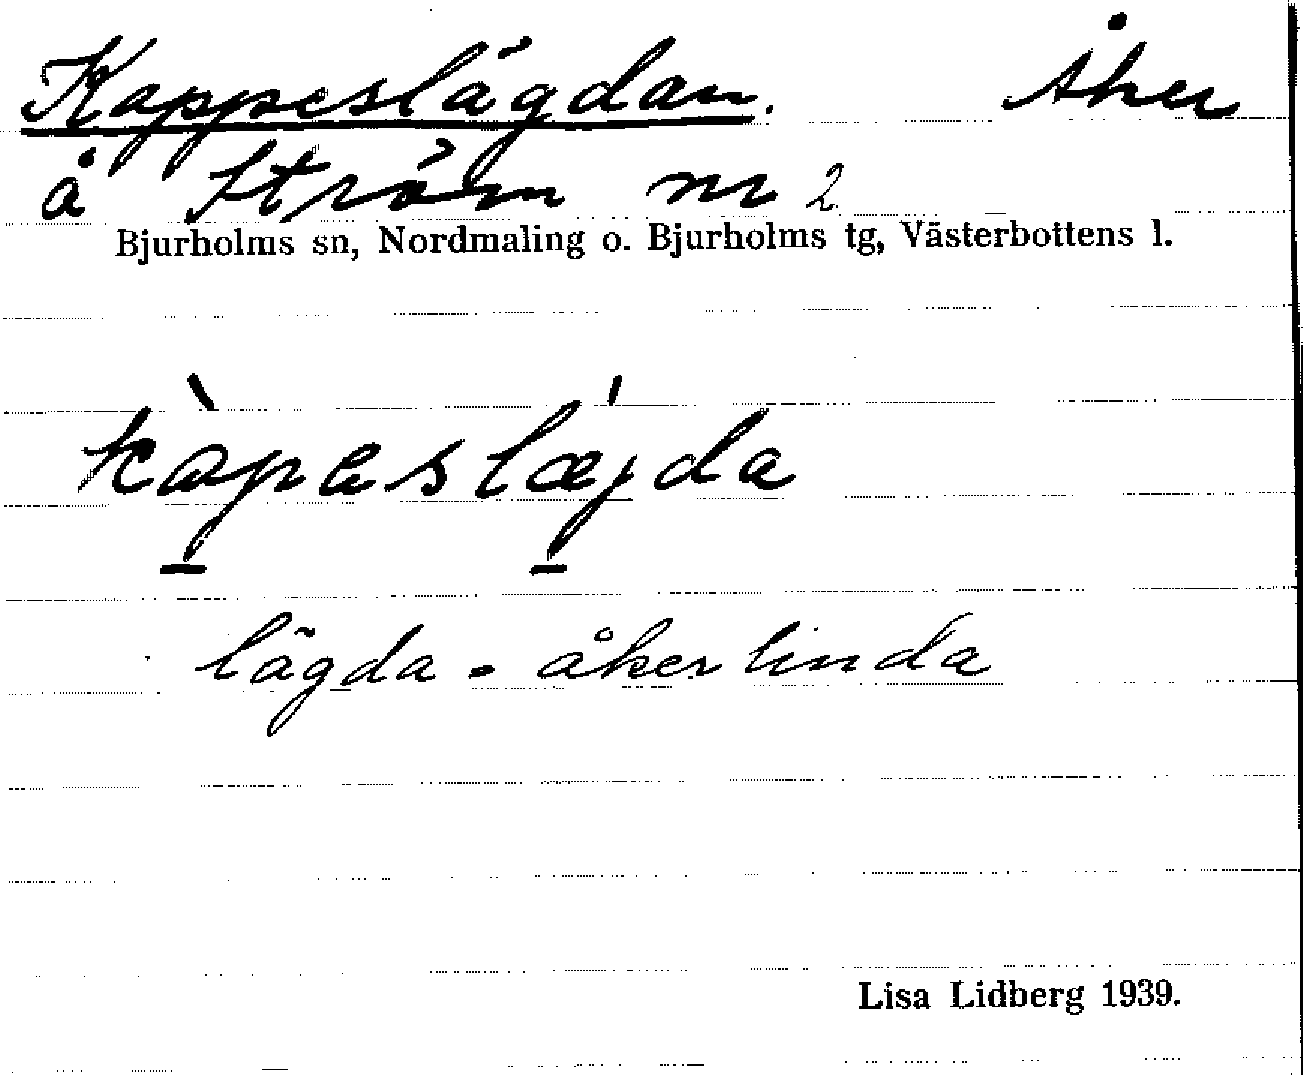 Kappeslägdan. Åker
å Ström nr 2
Bjurholms sn, Nordmaling o. Bjurholms tg, Västerbottens l.
kàpaslǽjda
lägda = åkerlinda
Lisa Lidberg 1939.